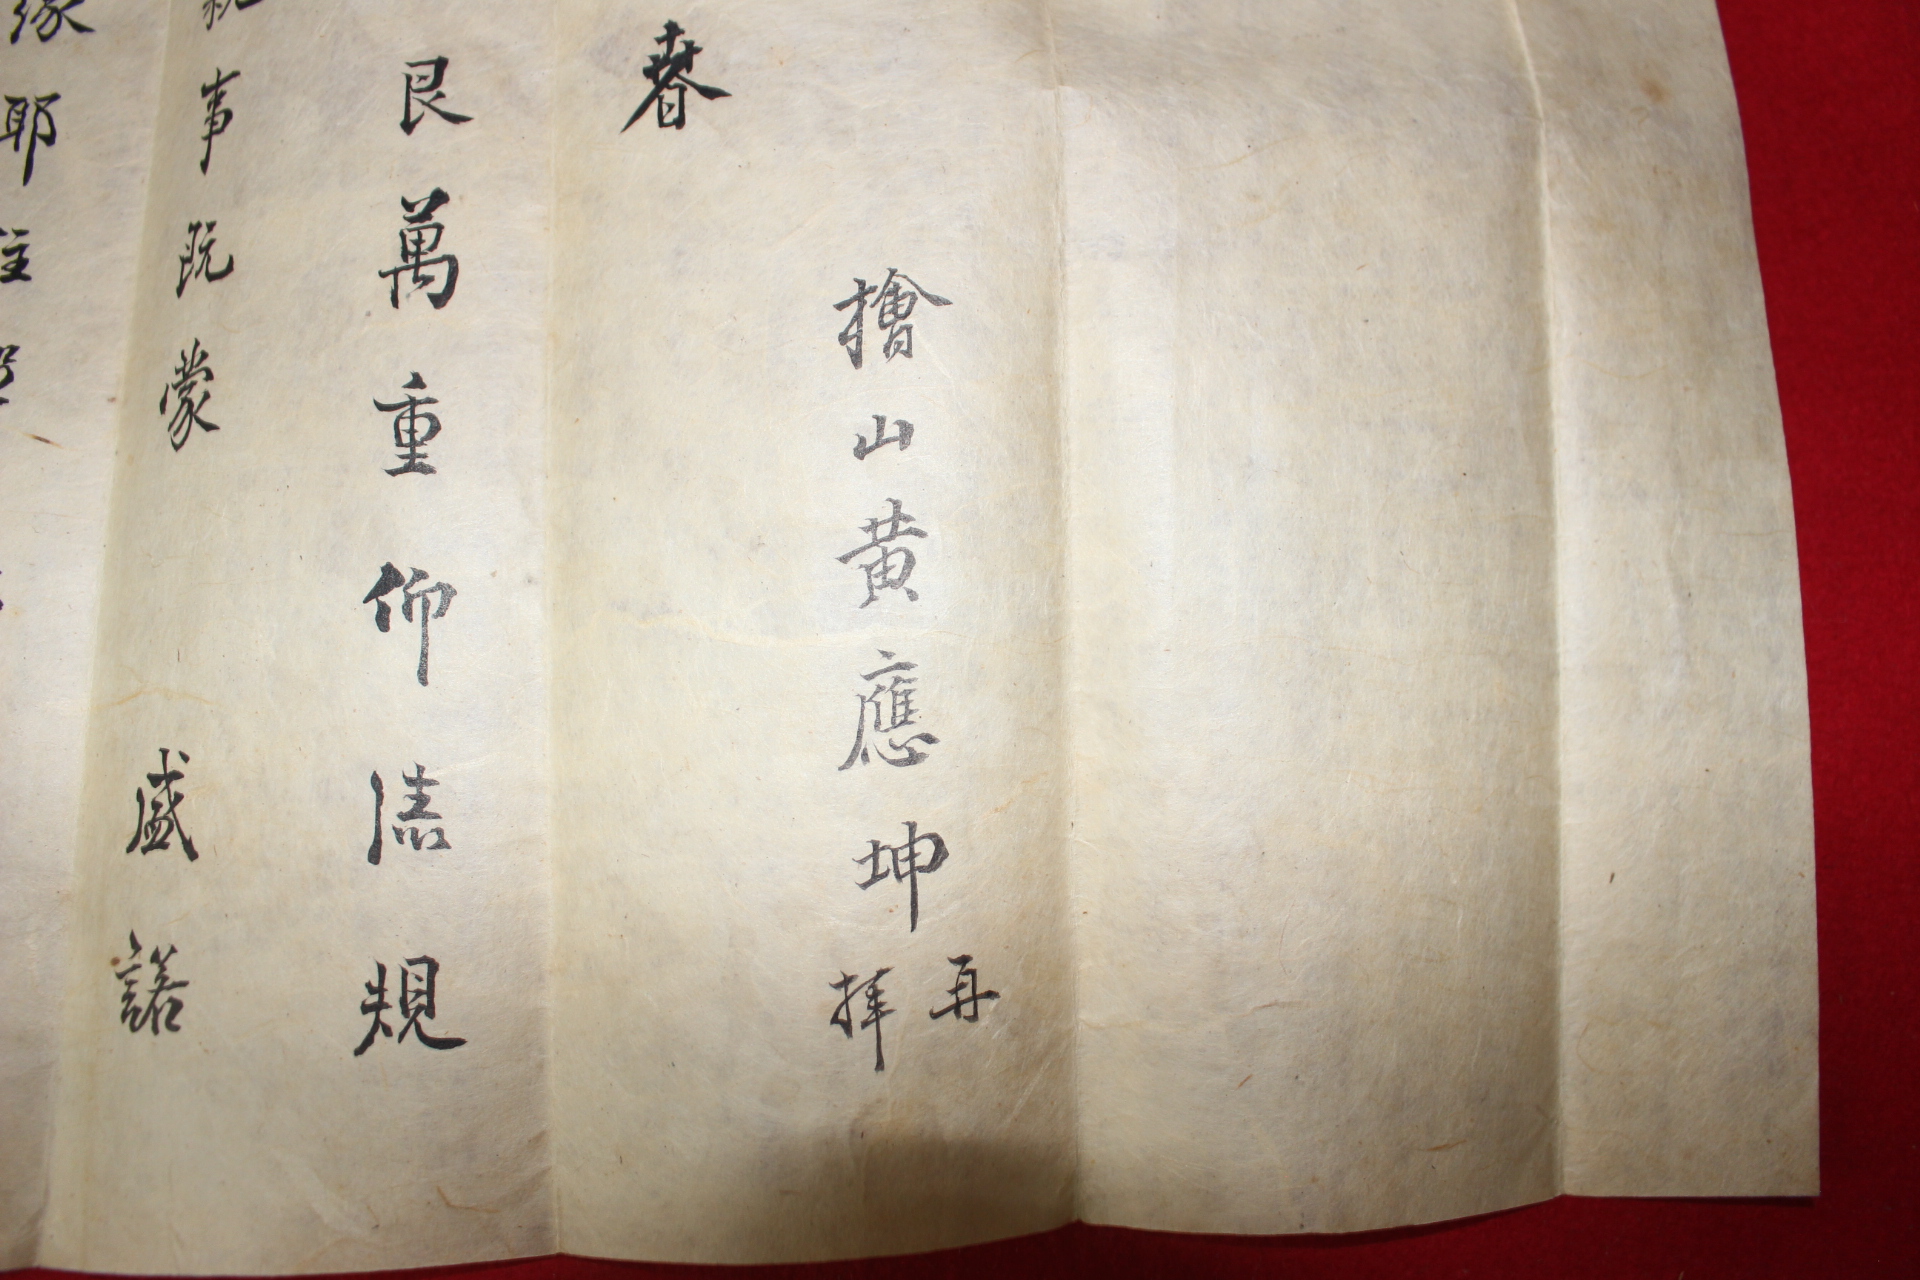 檜山黃應坤
再
拜
春
艮萬重仰溸規
親事既蒙 盛諾
緣耶